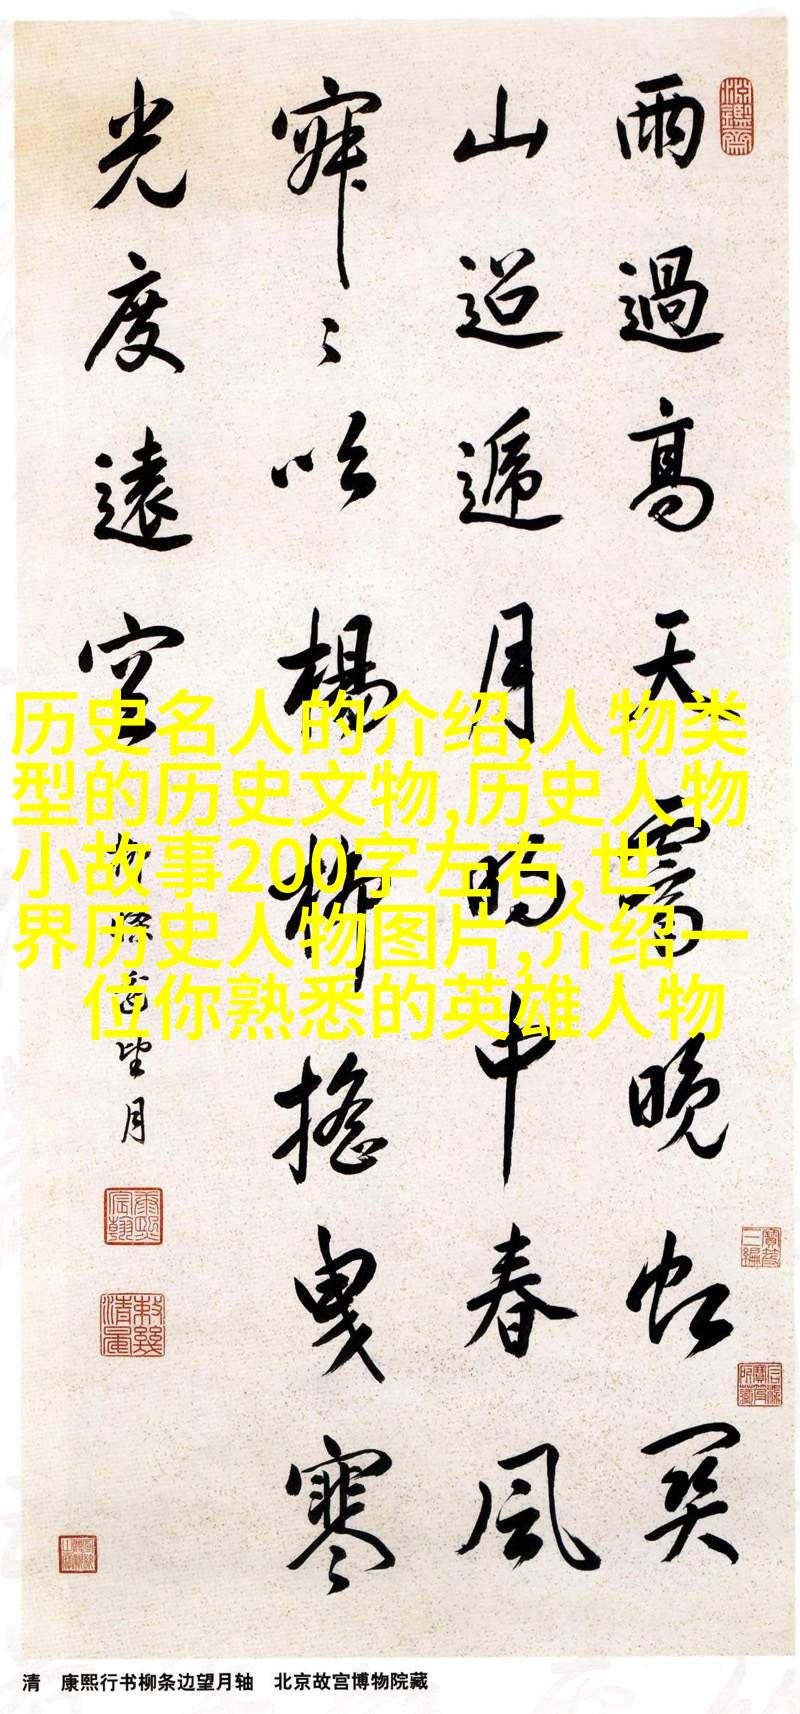 雨過高天霽晚虹關
山迢遞月明中春風
寂々吹楊柳搖曳寒
光度遠空
柳條邊望月
历史名人的介绍,人物类
型的历史文物,历史人物
小故事200字左右,世
界历史人物图片,介绍一
位你熟悉的英雄人物
清 康熙行书柳条边望月轴 北京故宫博物院藏